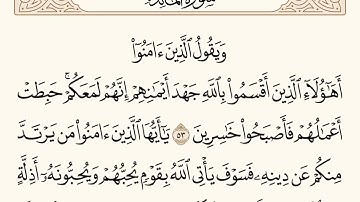 سورة المائدة
وَيَقُولُ ٱلَّذِينَ ءَامَنُوٓا۟
أَهَٰٓؤُلَآءِ ٱلَّذِينَ أَقْسَمُوا۟ بِٱللَّهِ جَهْدَ أَيْمَٰنِهِمْ إِنَّهُمْ لَمَعَكُمْ ۚ حَبِطَتْ
أَعْمَٰلُهُمْ فَأَصْبَحُوا۟ خَٰسِرِينَ ٥٣ يَٰٓأَيُّهَا ٱلَّذِينَ ءَامَنُوا۟ مَن يَرْتَدَّ
مِنكُمْ عَن دِينِهِۦ فَسَوْفَ يَأْتِى ٱللَّهُ بِقَوْمٍ يُحِبُّهُمْ وَيُحِبُّونَهُۥٓ أَذِلَّةٍ